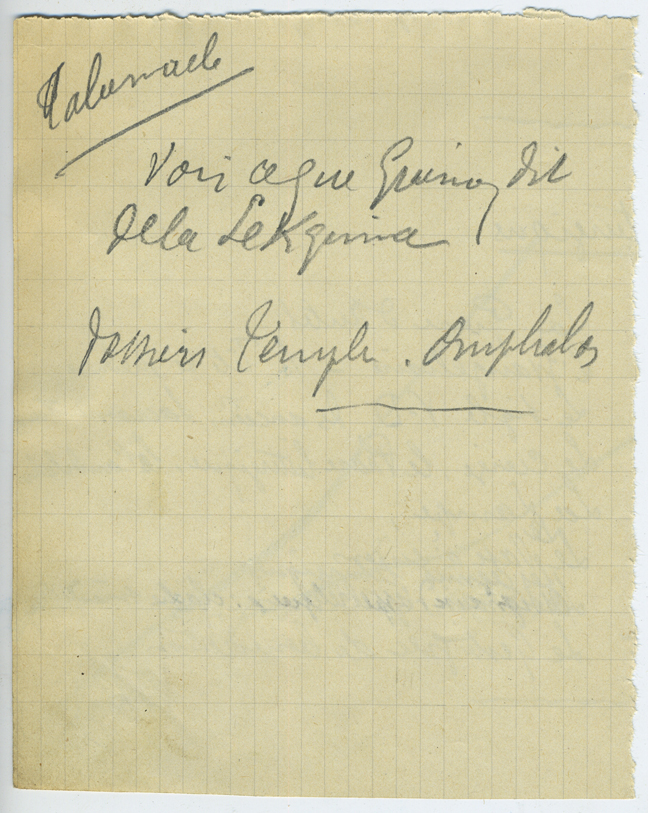 Tabernacle
Voir ce que Guénon dit
de la Sekhina
dossiers Temple. Omphalos